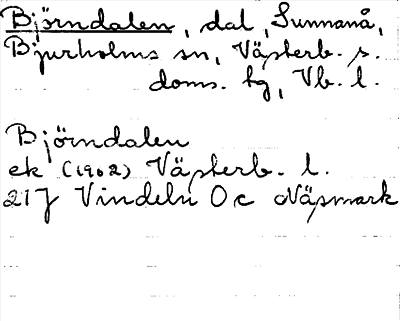 Björndalen, dal, Sunnanå,
Bjurholms sn, Västerb. s.
doms. hg, Vb. l.
Björndalen
ek (1902) Västerb. l.
21J Vindeln 0c Näsmark